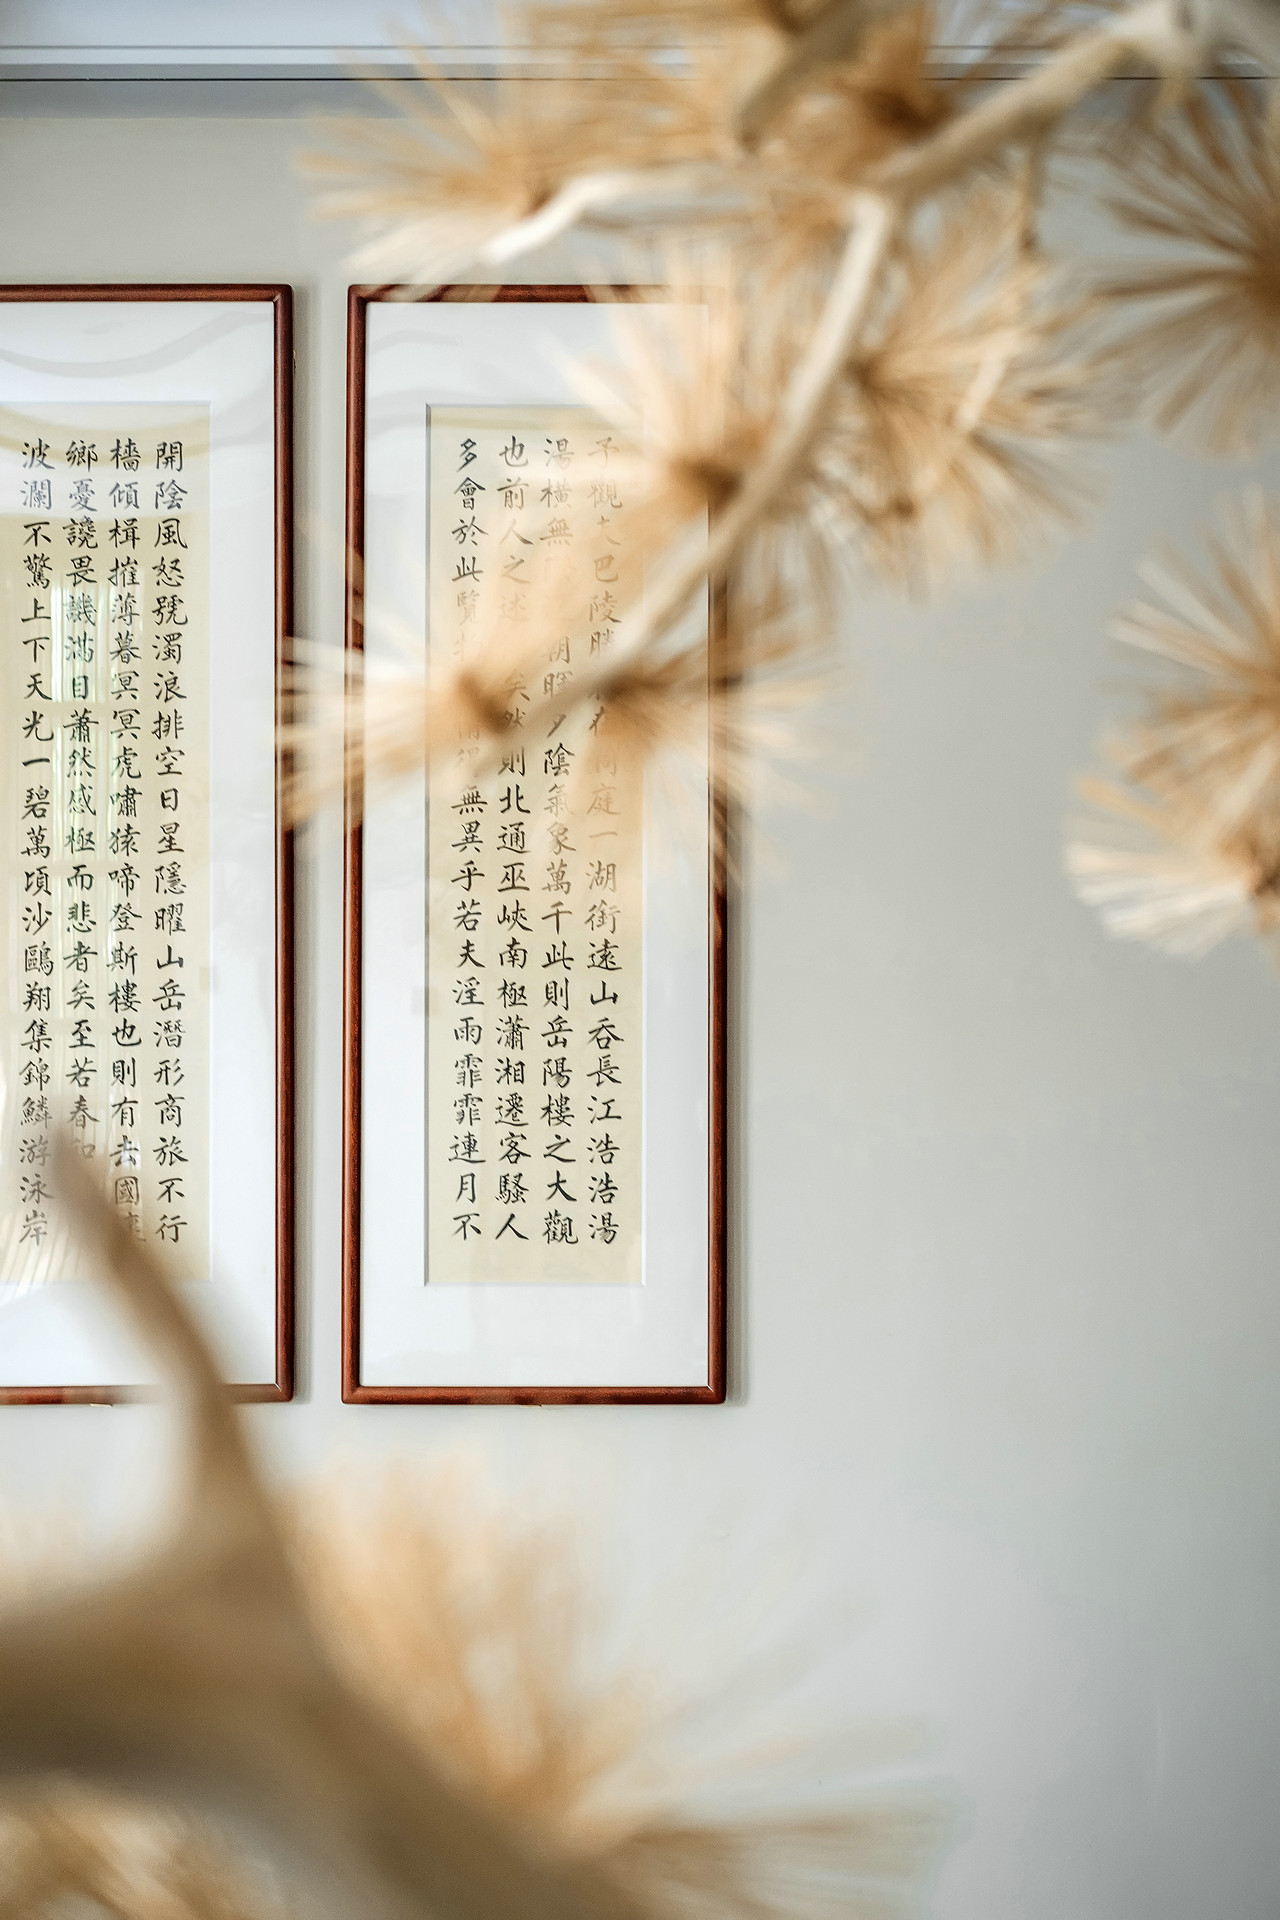 予觀巴陵勝洞庭一湖銜遠山吞長江浩浩湯
湯橫無朝暉夕陰氣象萬千此則岳陽樓之大觀
也前人之述矣然則北通巫峽南極瀟湘遷客騷人
多會於此覽得無異乎若夫淫雨霏霏連月不
開陰風怒號濁浪排空日星隱曜山岳潛形商旅不行
檣傾楫摧薄暮冥冥虎嘯猿啼登斯樓也則有去國懷
鄉憂讒畏譏滿目蕭然感極而悲者矣至若春和
波瀾不驚上下天光一碧萬頃沙鷗翔集錦鱗游泳岸